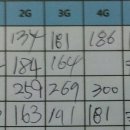 2G 3G 4G
134 181 186
184 164
259 269 300
163 191 181